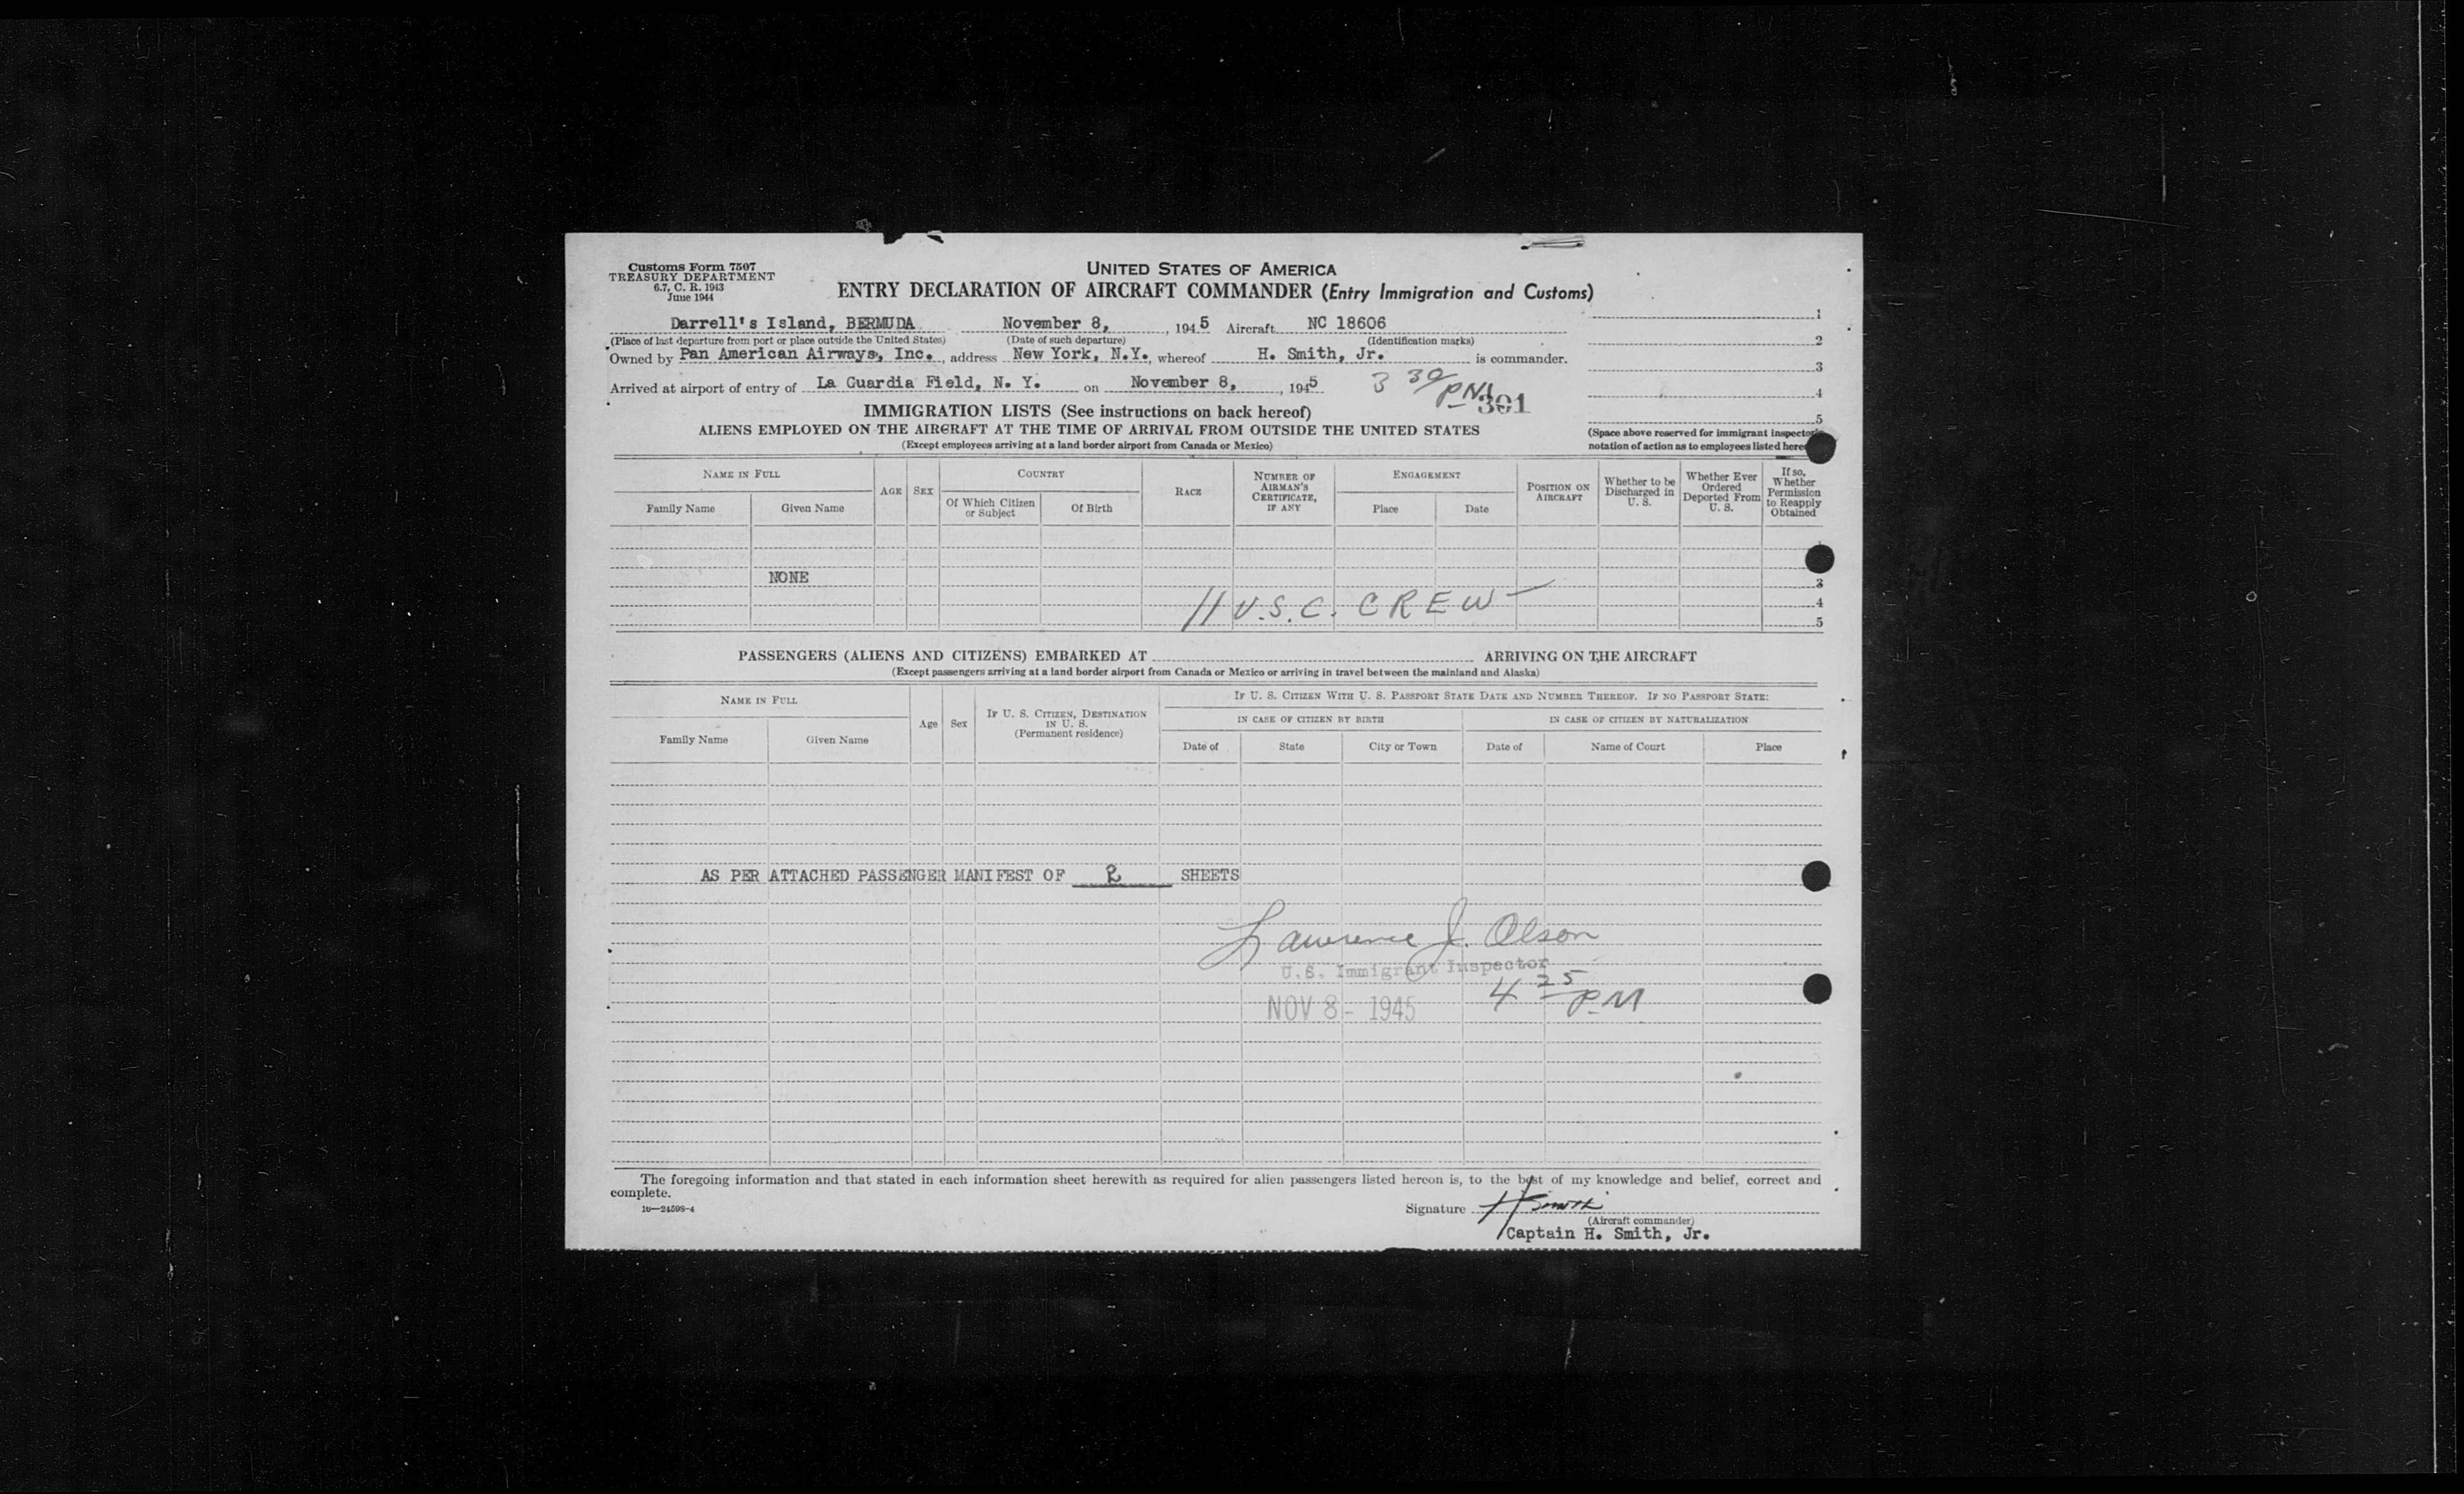 Customs Form 7507
TREASURY DEPARTMENT
6.7, C. R. 1943
June 1944
UNITED STATES OF AMERICA
ENTRY DECLARATION OF AIRCRAFT COMMANDER (Entry Immigration and Customs)
Darrell's Island, BERMUDA November 8, , 1945 Aircraft NC 18606
(Place of last departure from port or place outside the United States) (Date of such departure) (Identification marks)
Owned by Pan American Airways, Inc. , address New York, N.Y. , whereof H. Smith, Jr. is commander.
Arrived at airport of entry of La Guardia Field, N. Y. on November 8, , 1945 3 30 PM
301
1
2
3
4
5
(Space above reserved for immigrant inspector's
notation of action as to employees listed here
IMMIGRATION LISTS (See instructions on back hereof)
ALIENS EMPLOYED ON THE AIRCRAFT AT THE TIME OF ARRIVAL FROM OUTSIDE THE UNITED STATES
(Except employees arriving at a land border airport from Canada or Mexico)
NAME IN FULL
Family Name Given Name
AGE SEX
COUNTRY
Of Which Citizen or Subject Of Birth
RACE
NUMBER OF AIRMAN'S CERTIFICATE, IF ANY
ENGAGEMENT
Place Date
POSITION ON AIRCRAFT
Whether to be Discharged in U. S.
Whether Ever Ordered Deported From U. S.
If so, Whether Permission to Reapply Obtained
NONE
3
11 U.S.C. CREW
4
5
PASSENGERS (ALIENS AND CITIZENS) EMBARKED AT ARRIVING ON THE AIRCRAFT
(Except passengers arriving at a land border airport from Canada or Mexico or arriving in travel between the mainland and Alaska)
NAME IN FULL
Family Name Given Name
Age Sex
IF U. S. CITIZEN, DESTINATION IN U. S. (Permanent residence)
IF U. S. CITIZEN WITH U. S. PASSPORT STATE DATE AND NUMBER THEREOF. IF NO PASSPORT STATE:
IN CASE OF CITIZEN BY BIRTH IN CASE OF CITIZEN BY NATURALIZATION
Date of State City or Town Date of Name of Court Place
AS PER ATTACHED PASSENGER MANIFEST OF 2 SHEETS
Lawrence J. Olson
U.S. Immigrant Inspector
NOV 8 - 1945 4 25 PM
The foregoing information and that stated in each information sheet herewith as required for alien passengers listed hereon is, to the best of my knowledge and belief, correct and
complete.
16—24598-4
Signature H Smith
(Aircraft commander)
Captain H. Smith, Jr.